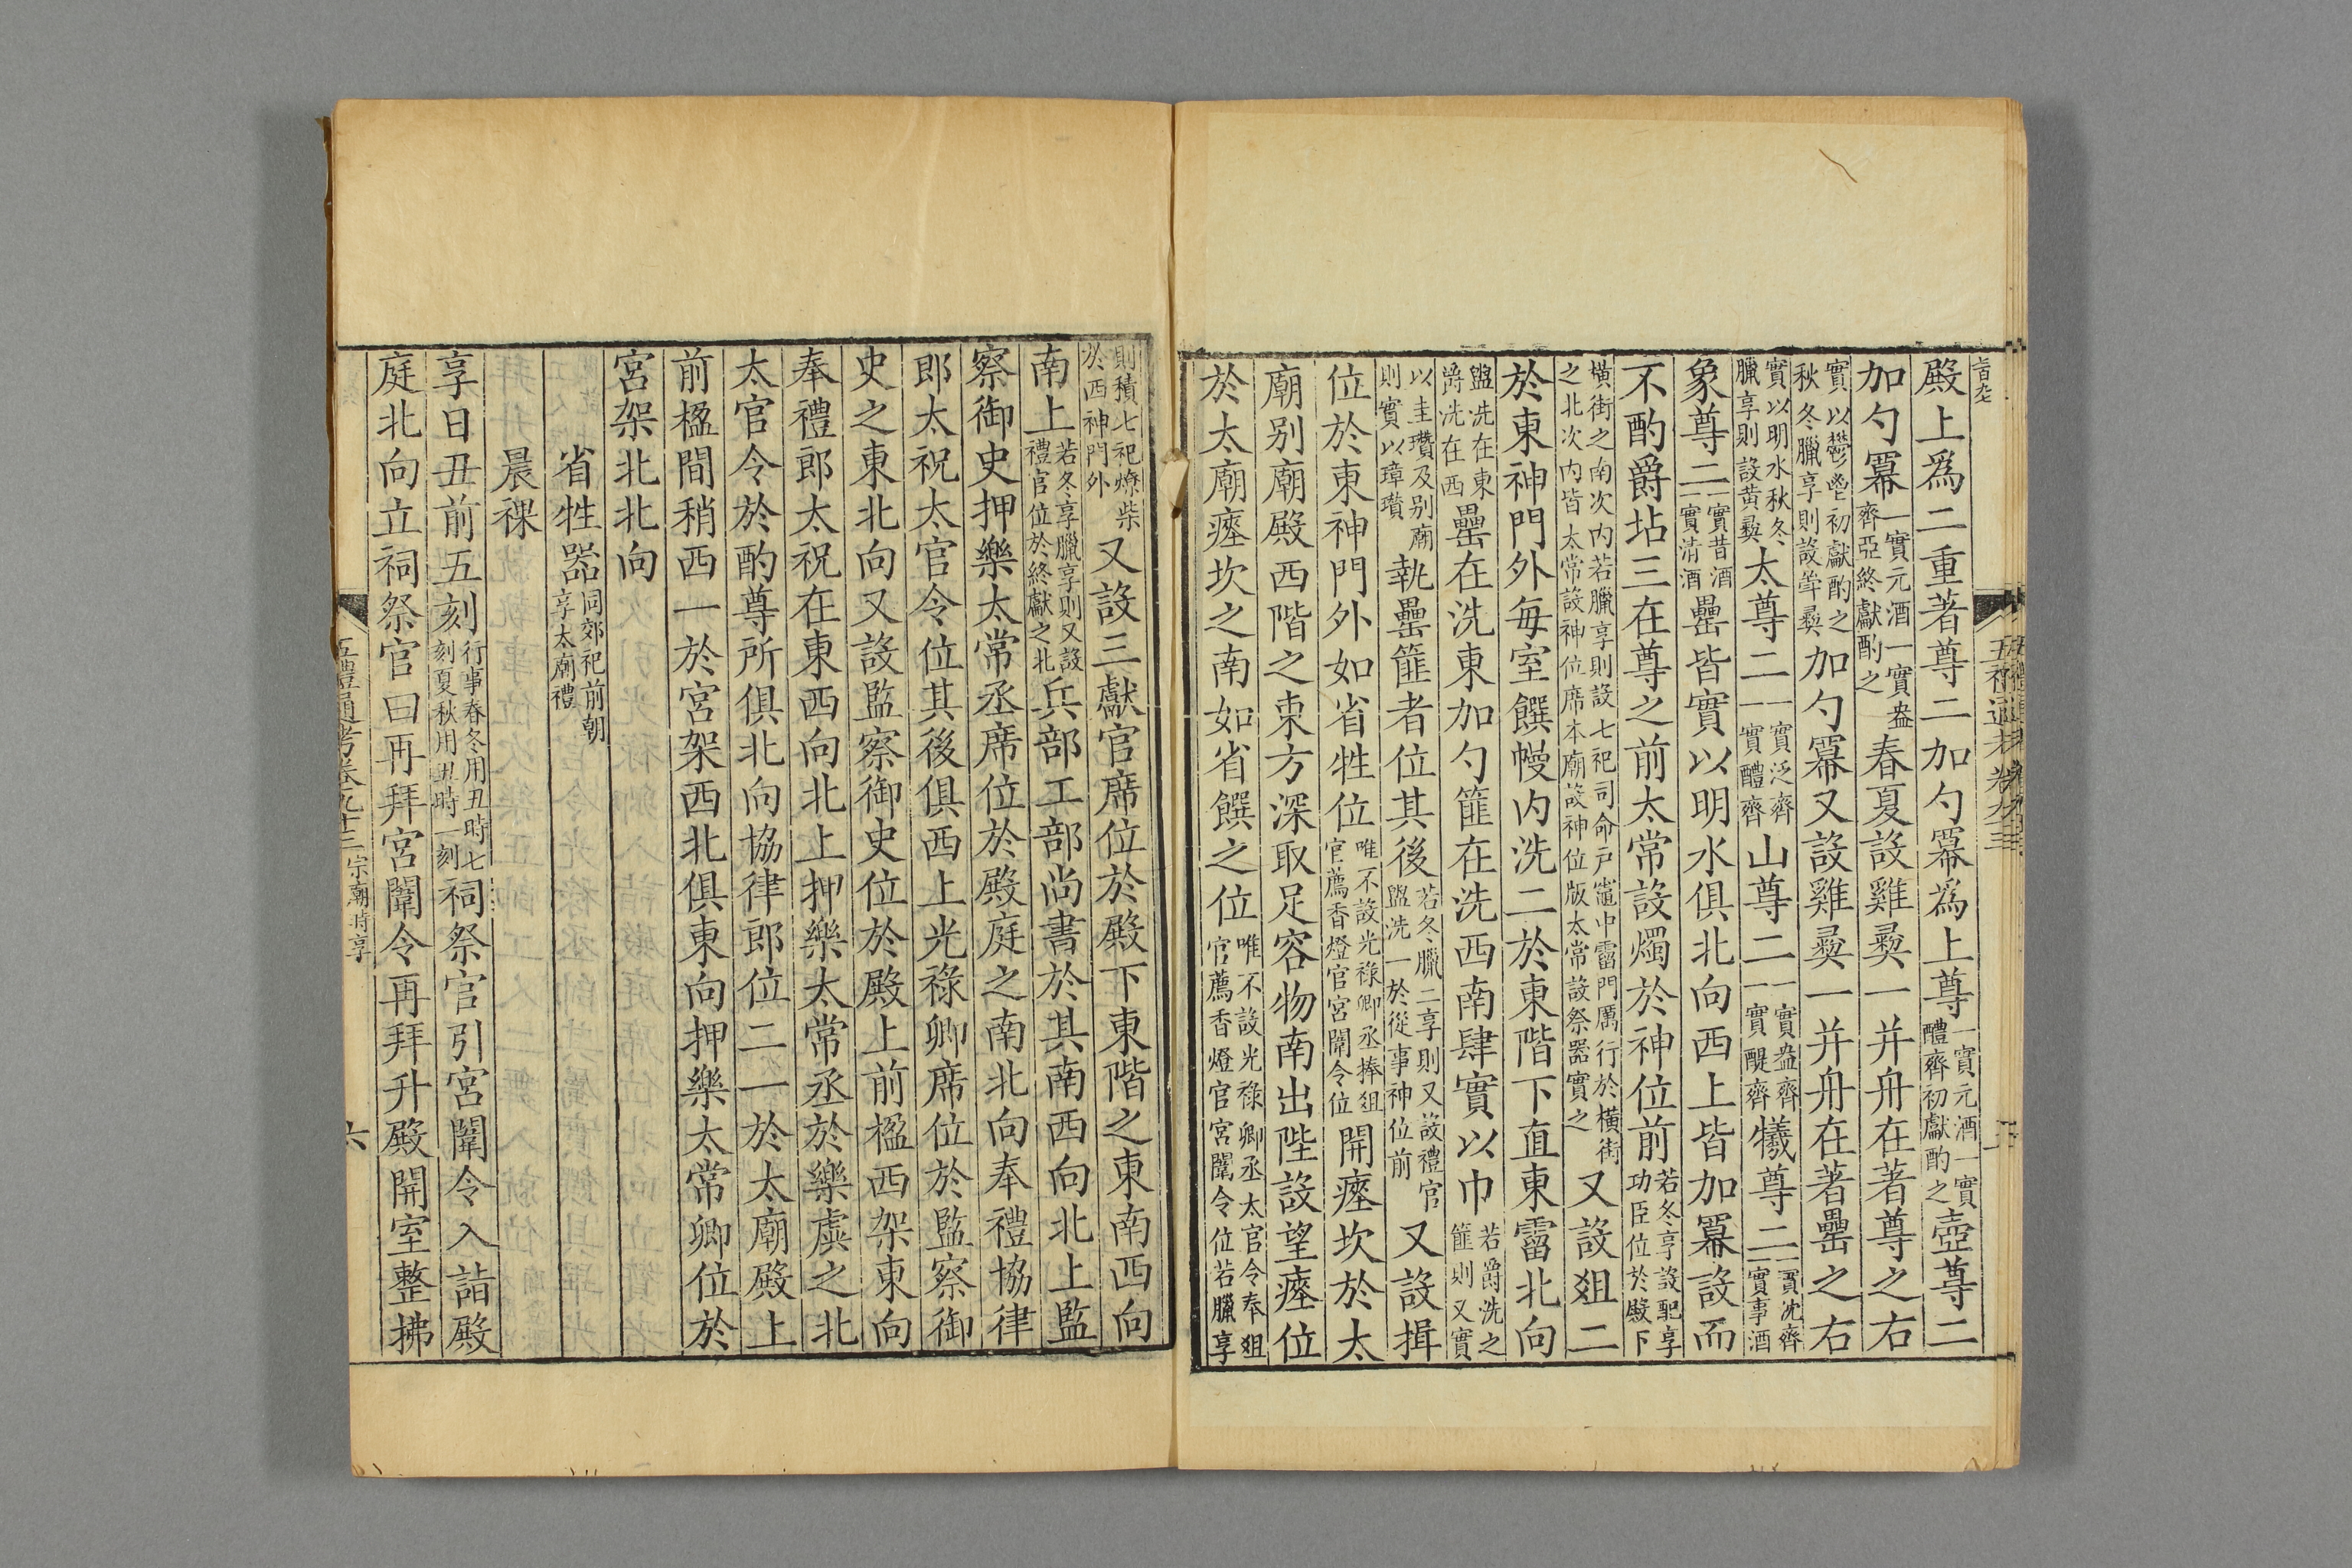 殿上爲二重著尊二加勺冪爲上尊一實元酒一實醴齊初獻酌之壺尊二
加勺冪一實元酒一實盎齊亞終獻酌之春夏設雞彜一并舟在著尊之右
實以鬱鬯初獻酌之秋冬臘享則設斝彜加勺冪又設雞彜一并舟在著罍之右
實以明水秋冬臘享則設黄彜太尊二一實泛齊一實醴齊山尊二一實盎齊一實醍齊犧尊二一實沈齊一實事酒
象尊二一實昔酒一實清酒罍皆實以明水俱北向西上皆加冪設而
不酌爵坫三在尊之前太常設燭於神位前若冬享設配享功臣位於殿下
橫街之南次内若臘享則設七祀司命户竈中霤門厲行於橫街之北次内皆太常設神位席本廟設神位版太常設祭器實之又設俎二
於東神門外每室饌幔内洗二於東階下直東霤北向
盥洗在東爵洗在西罍在洗東加勺篚在洗西南肆實以巾若爵洗之篚則又實
以圭瓚及别廟則實以璋瓚執罍篚者位其後若冬臘二享則又設禮官盥洗一於從事神位前又設揖
位於東神門外如省牲位唯不設光祿卿丞捧俎官薦香燈官宮闈令位開瘞坎於太
廟别廟殿西階之東方深取足容物南出陛設望瘞位
於太廟瘞坎之南如省饌之位唯不設光祿卿丞太官令奉俎官薦香燈官宮闈令位若臘享
則積七祀燎柴於西神門外又設三獻官席位於殿下東階之東南西向
南上若冬享臘享則又設禮官位於終獻之北兵部工部尚書於其南西向北上監
察御史押樂太常丞席位於殿庭之南北向奉禮協律
郎太祝太官令位其後俱西上光祿卿席位於監察御
史之東北向又設監察御史位於殿上前楹西架東向
奉禮郎太祝在東西向北上押樂太常丞於樂虡之北
太官令於酌尊所俱北向協律郎位二一於太廟殿上
前楹間稍西一於宮架西北俱東向押樂太常卿位於
宮架北北向
省牲器同郊祀前朝享太廟禮
晨祼
享日丑前五刻行事春冬用丑時七刻夏秋用丑時一刻祠祭官引宮闈令入詣殿
庭北向立祠祭官曰再拜宮闈令再拜升殿開室整拂
五禮通考卷九十三 宗廟時享
六